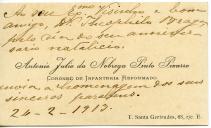 Ao seu Exmo Vizinho e bom
amigo, Dr. Theophilo Braga
pelo dia do seu anniver-
sario natalicio.
Antonio Julio da Nobrega Pinto Pizarro
CORONEL DE INFANTERIA REFORMADO
envia a homenagem dos seus
sinceros parabens.
24-2-1913.
T. Santa Gertrudes, 68, r/c E.